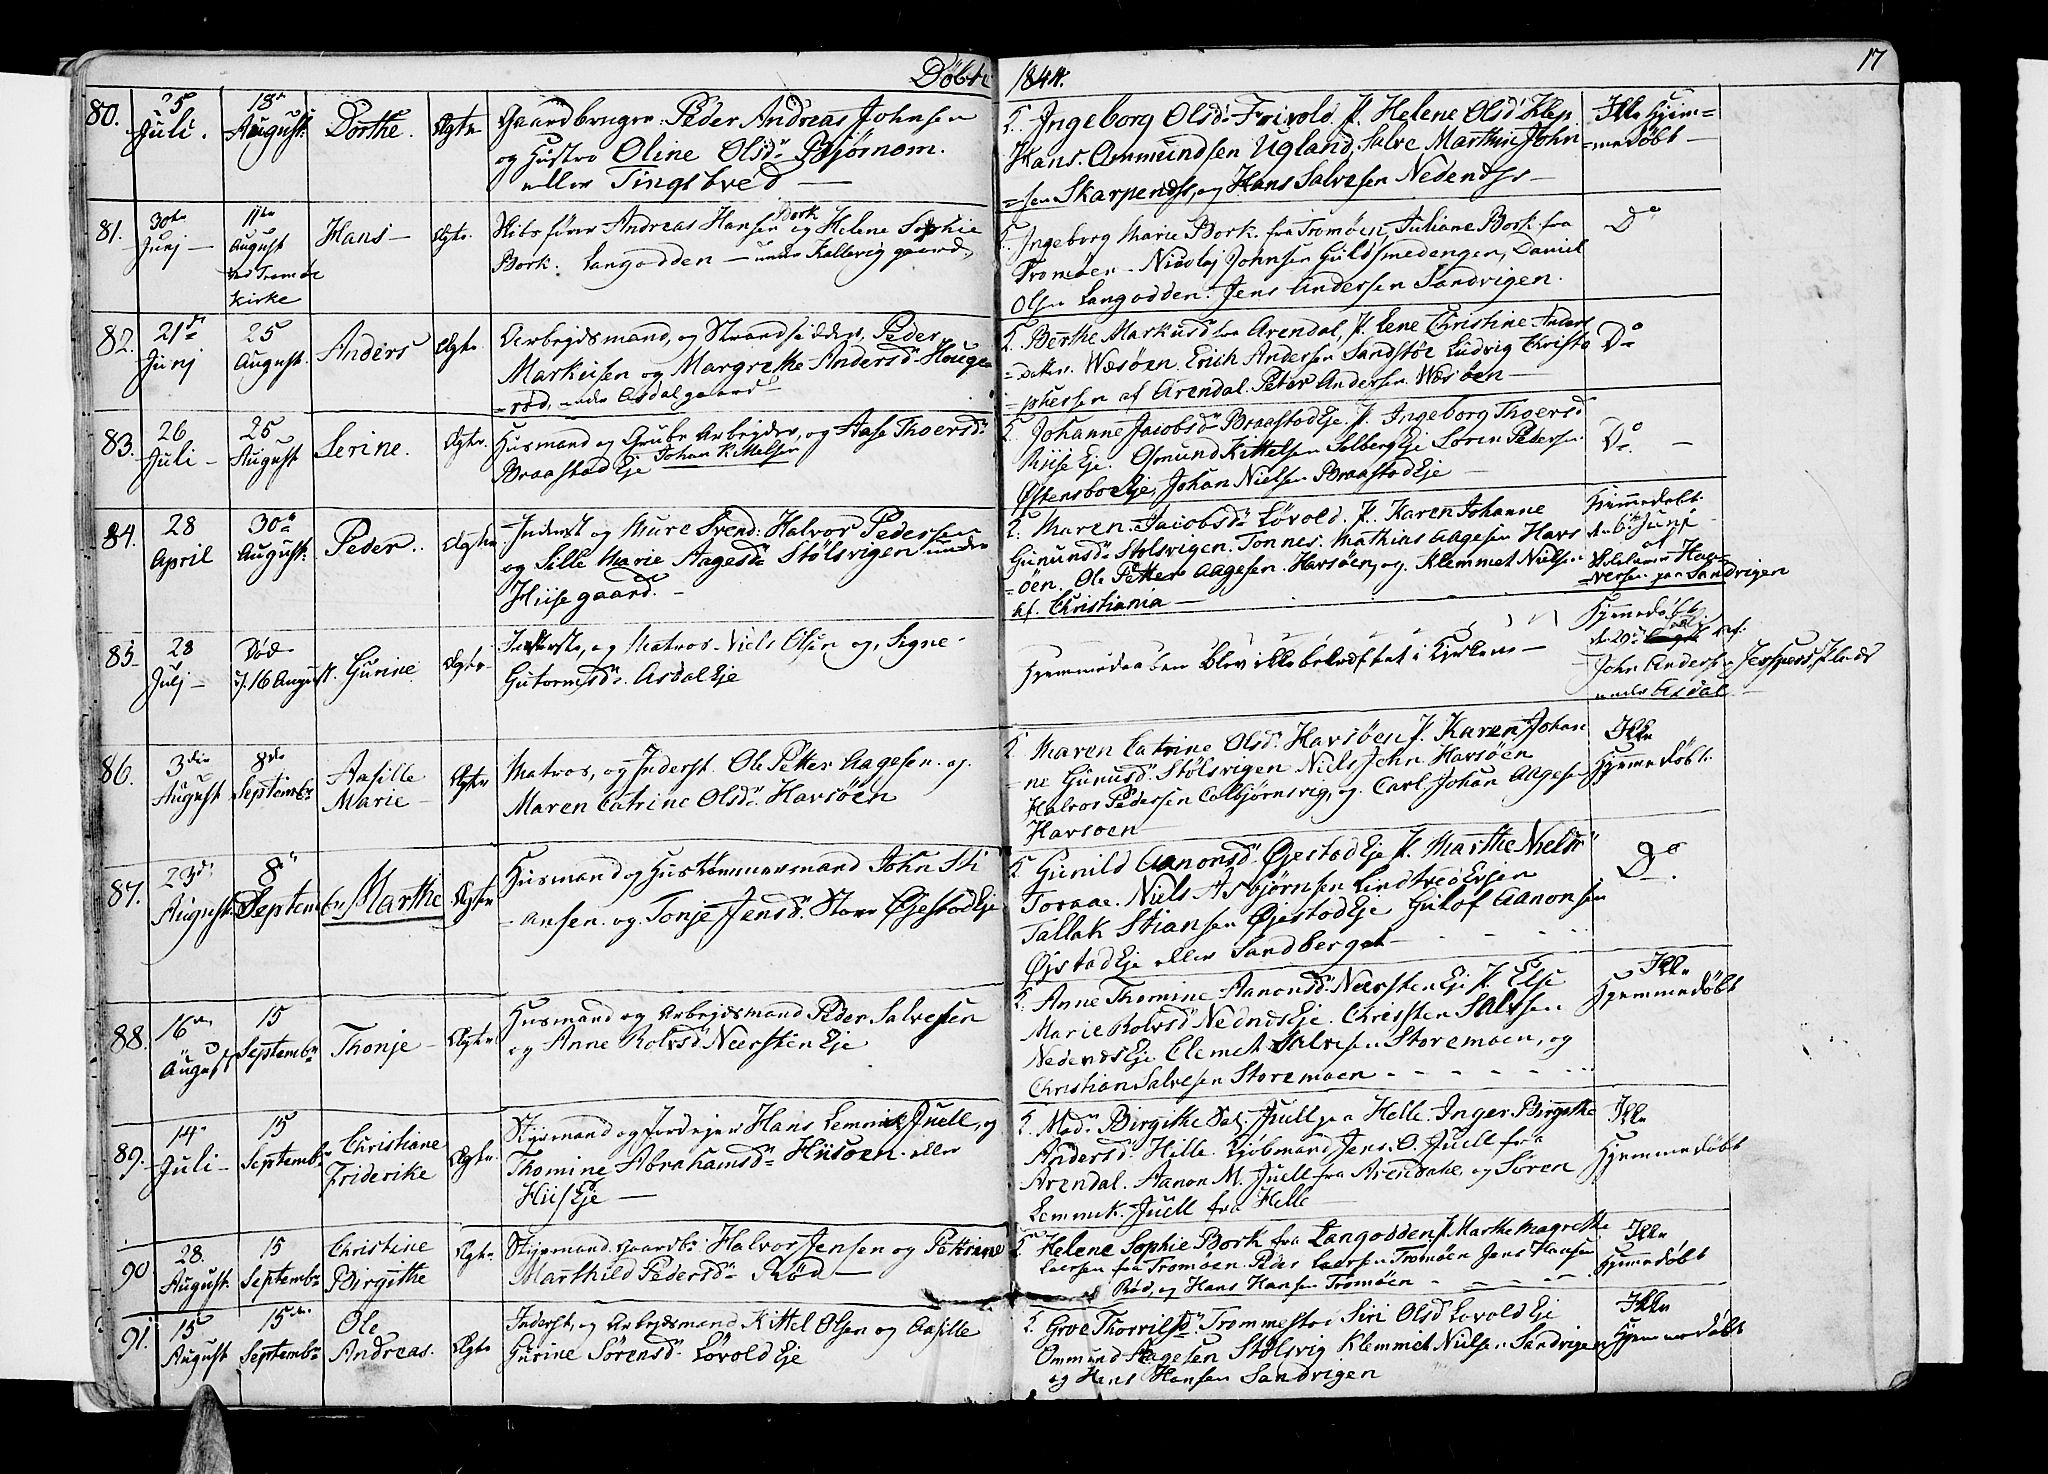 Døbte 1844. 17
80. 25 Juli. 18de August. Dorthe. Ægte
Gaardbruger. Peder Andreas Johnsen
og Hustro Oline Olsdr Bjørnom.
eller Tingsbred —
T. Ingeborg Olsdr Frivold. P. Helene Olsd Klep
Hans. Ommundsen Ugland, Salve Marthin John-
=sen Skarpenæs, og Hans Salvesen Nedenæs —
Ikke Hjem=
=medøbt —
81. 30te Junj — 11te August ved Tromøe Kirke Hans — Ægte.
Andreas Hansen Bork og Helene Sophie
Bork. Langodden — under Kallevig gaard
T. Ingeborg Marie Bork fra Tromøen, Juliane Bork fra
Tromøen. Nicolaj Johnsen Guldsmedengen, Daniel
Olsen Langodden. Jens Andersen Sandvigen.
Do
82. 21de Junj 25 August. Anders Ægte
Arbejdsmand, og Strandsidder, Peder
Markusen og Margrethe Andersdr Hauge
=rød, under Asdal gaard —
T. Berthe Markusdr fra Arendal, P. Lene Christine Anders
=datter. Wæsøen. Erich Andersen Sandstøe Ludvig Christo
=phersen af Arendal. Peter Andersen Wæsøen —
Do
83. 26 Juli — 25 August Serine. Ægte.
Husmand og Grube Arbejder, og Aase Thoersdr
Braastad Eje Johan Nielsen
T. Johanne Jacobsdr Braastad Eje, P. Ingeborg Thoersd
Riise Eje. Osmund Kittelsen Solberg Eje Søren Petersen
Østensboe Eje, Johan Nielsen Braastad Eje —
Do —
84. 28 April 30te August. Peder. Ægte
Inderst og Mure Svend. Halvor Pedersen
og Sille Marie Aagesdr Stølsvigen under
Hiisegaard. —
T. Maren Jacobsdr Løvold. P. Karen Johanne
Gununsdr Stølsvigen. Tønnes. Mathias Aagesen Havs
=øen. Ole Petter Aagesen. Havsøen, og. Klemmet Nielsen
af. Christiania —
Hjemmedøbt
d. 6te Junj
af
=versen paa Sandvigen
85. 28 Julj — Død d. 16 August. Gurine Ægte
Inderste, og Matros Niels Olsen og, Signe
Gutormsdr. Asdal Eje
Hjemmedaaben blev ikke bekræftet i Kirken —
Hjemmedøbt
d. 29de Juli af:
John Anderse Jespers Plads
under Asdal
86. 3die August 8de Septembr Aasille Marie — Ægte
Matros, og Inderst. Ole Petter Aagesen. og.
Maren Catrine Olsdr Havsøen
T. Maren Catrine Olsd. Havsøen P. Karen Johan
=ne Gunusdr Stølsvigen Niels John Havsøen
Halvor Pedersen Colbjørnsvig, og. Carl Johan Aagesen
Havsøen
Ikke
Hjemedøbt.
87. 23de August 8de Septembr Marthe Ægte
Husmand og Hustømmermand John Sti
=ansen. og. Tonje Jensdr Store Øjestad Eje
T. Gunild Aanonsdr Øjestad Eje P. Marthe Nielsdr
Toraae. Niels Asbjørnsen Lindtvedt Ejen
Tallak Stiansen Øjestad Eje Gulof Aanonsen
Øjstad Eje eller Sandberget —
Do.
88. 16de August 15 Septembr Thonje — Ægte
Husmand og Arbejdsmand Peder Salvesen
og Anne Rolvsd Neersten Eje
T. Anne Thomine Aanonsdr Neersten Eje P. Else
Marie Rolvsd Nednæs Eje. Christen Salvsen
Nedenæs Eje Clemet Salvesen Storemoen, og
Christian Salvesen Storemoen
Ikke
Hjemmedøbt
89. 14de Juli — 15 Septembr Christiane Friderike Ægte
Styrmand og Jordejer Hans Lemmik Juell, og
Thomine Abrahamsdr Hiisøen. eller
Hiis Eje —
T. Madm Birgithe Sal. Juell paa Helle. Inger Birgithe
Andersdr Hille. Kjøbmand Jens. O. Juell fra
Arendal. Aanon M. Juell fra Arendahl og Søren
Lemmik. Juell fra Helle
Ikke
Hjemmedøbt
90 28. August. 15 Septembr Christine Birgithe Ægte
Styrmand. Gaardbr. Halvor Jensen og Pettrine
Marthild Pedersdr Rød —
T. Helene Sophie Bork fra Langodden P. Marthe Magrethe
Larsen fra Tromøen Peder Larsen Tromøen Jens Hansen
Rød, og Hans Hansen Tromøen
Ikke
Hjemmedøbt
91. 15 August 15de Septembr Ole Andreas. Ægte
Inderst, og Arbejdsmand Kittel Olsen og Aasille
Gurine Sørensdr Løvold Eje
T. Groe Thorvilsdr Trommestad Siri Olsd Lovold Eje
Ommund Aagesen Stølsvig Klemmet Nielsen Sandvigen
og Hans Hansen Sandvigen
Ikke
Hjemmedøbt